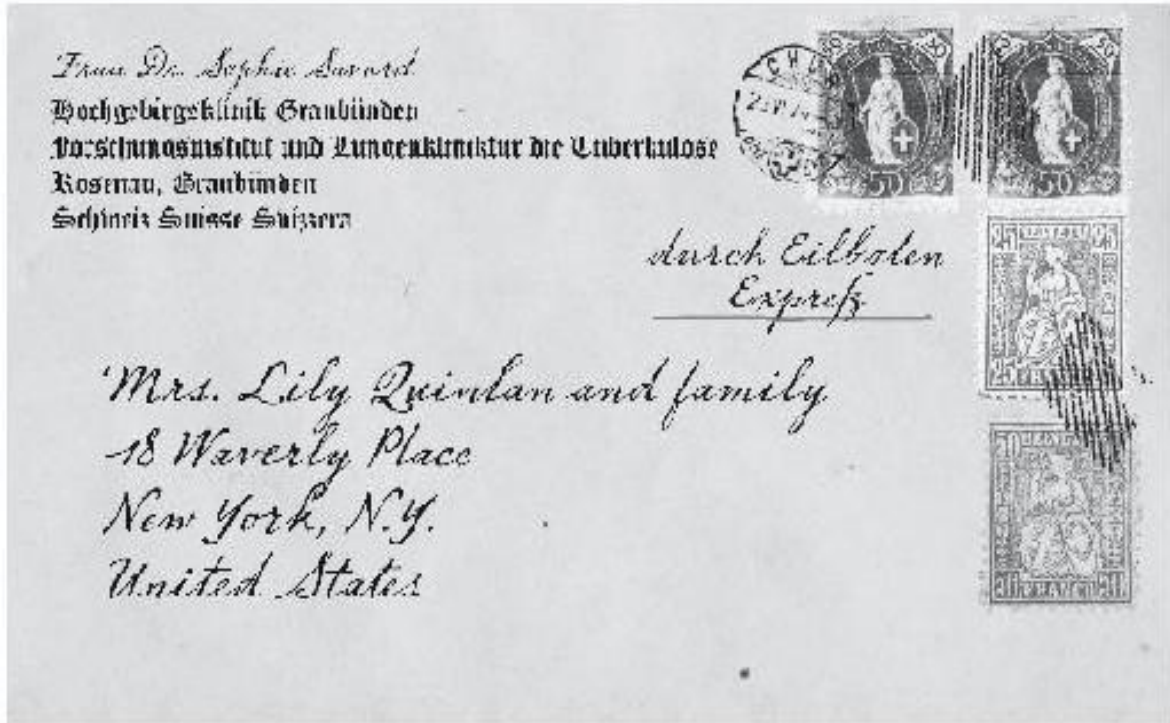 Frau Dr. Sophie Savard
Hochgebirgsklinik Graubünden
Forschungsinstitut und Lungenklinik für die Tuberkulose
Rosenau, Graubünden
Schweiz Suisse Svizzera
50 50
50 50
50
50
durch Eilboten
Expreß
25 25
25
FRANCO
Mrs. Lily Quinlan and family
18 Waverly Place
New York, N.Y.
United States
FRANCO